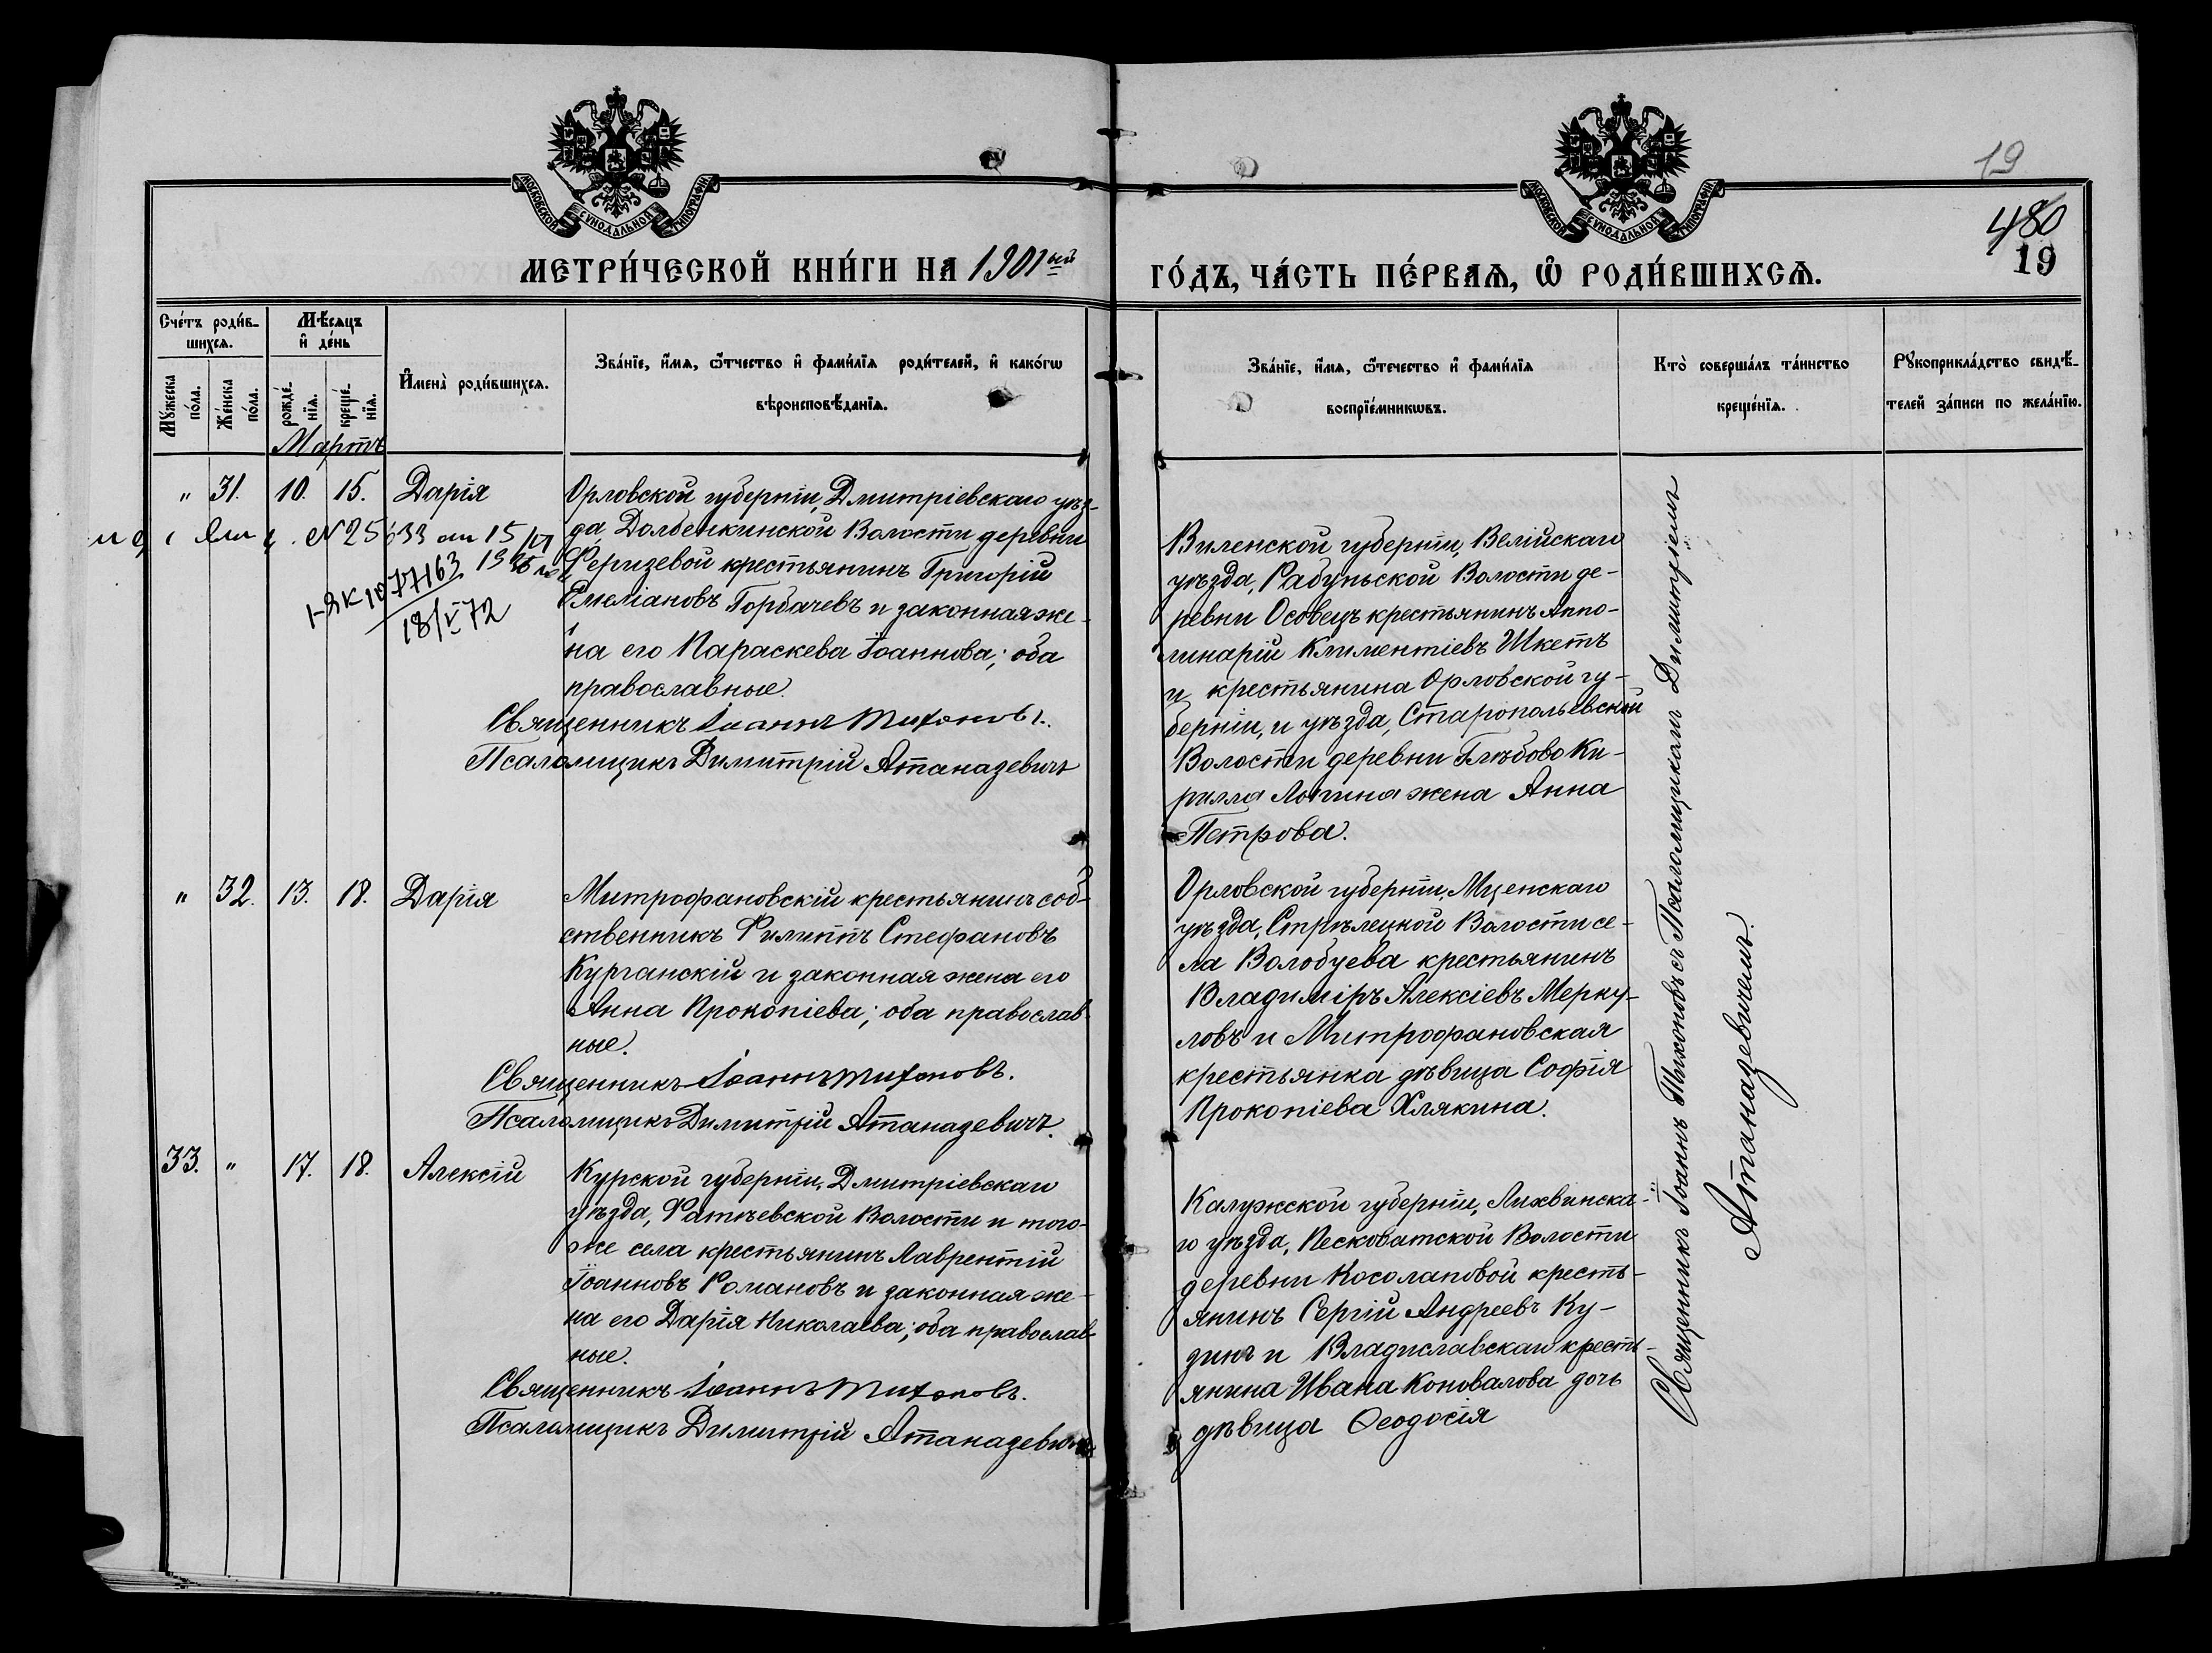 МОСКОВСКОЙ СУНОДАЛЬНОЙ ТИПОГРАФІИ
МОСКОВСКОЙ СУНОДАЛЬНОЙ ТИПОГРАФІИ
19
480
19
МЕТРИ́ЧЕСКОЙ КНИ́ГИ НА 1901ый
ГО́ДЪ, ЧА́СТЬ ПЕ́РВАѦ, Ѽ РОДИ́ВШИХСѦ.
Сче́тъ роди́в-
шихсѧ.
Мѣ́сѧцъ
и҆ де́нь
Мꙋ́жеска
по́ла.
Же́нска
по́ла.
рожде́-
нїѧ.
креще́-
нїѧ.
И҆мена̀ роди́вшихсѧ.
Зва́нїе, и҆́мѧ, ѻ҆́тчество и҆ фами́лїѧ роди́телей, и҆ како́гѡ
вѣроисповѣ́данїѧ.
Зва́нїе, и҆́мѧ, ѻ҆́течество и҆ фами́лїѧ
воспрїе́мникѡвъ.
Кто̀ соверша́лъ та́инство
креще́нїѧ.
Рꙋкоприкла́дство свидѣ́-
телей за́писи по жела́нїю.
Мартъ
" 31. 10. 15. Дарія
Орловской губерніи, Дмитріевскаго уѣз-
да Долбенкинской Волости деревни
Феризевой крестьянинъ Григорій
Емеліановъ Горбачевъ и законная же-
на его Параскева Іоаннова; оба
православные.
Священникъ Іоаннъ Тихоновъ.
Псаломщикъ Димитрій Атаназевичъ
N 25633 от 15/VI
1-ЯК 1077163
18/V 72
Виленской губерніи, Велійскаго
уѣзда, Рабуньской Волости де-
ревни Осовецъ крестьянинъ Аппо-
линарій Климентіевъ Шкетъ
и крестьянина Орловской гу-
берніи, и уѣзда, Старопольевской
Волости деревни Глѣбово Ки-
рилла Логина жена Анна
Петрова.
" 32. 13. 18. Дарія
Митрофановскій крестьянинъ соб-
ственникъ Филиппъ Стефановъ
Курганскій и законная жена его
Анна Прокопіева; оба православ-
ные.
Священникъ Іоаннъ Тихоновъ.
Псаломщикъ Димитрій Атаназевичъ.
Орловской губерніи, Мценскаго
уѣзда, Стрѣлецкой Волости се-
ла Волобуева крестьянинъ
Владиміръ Алексіевъ Мерку-
ловъ и Митрофановская
крестьянка дѣвица Софія
Прокопіева Хлякина.
33. " 17. 18. Алексій
Курской губерніи, Дмитріевскаго
уѣзда, Фатѣевской Волости и того-
же села крестьянинъ Лаврентій
Іоанновъ Романовъ и законная же-
на его Дарія Николаева; оба православ-
ные.
Священникъ Іоаннъ Тихоновъ.
Псаломщикъ Димитрій Атаназевичъ
Калужской губерніи, Лихвинска-
го уѣзда, Песковатской Волости
деревни Косолаповой кресть-
янинъ Сергій Андреевъ Ку-
зинъ и Владиславскаго кресть-
янина Ивана Коновалова дочь
дѣвица Ѳеодосія
Священникъ Іоаннъ Тихоновъ съ Псаломщикомъ Димитріемъ
Атаназевичемъ.